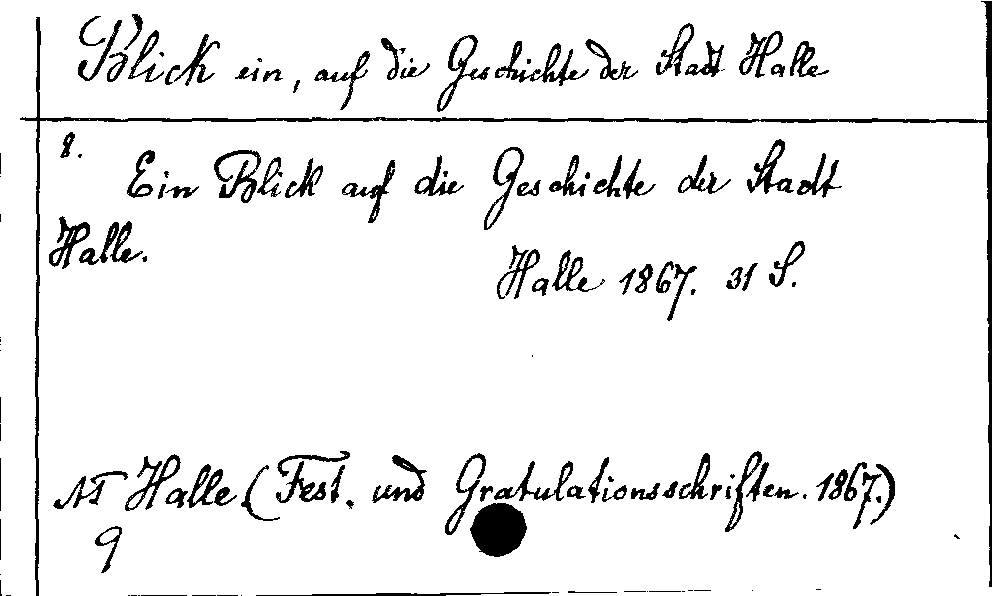 Blick ein, auf die Geschichte der Stadt Halle
8.
Ein Blick auf die Geschichte der Stadt
Halle.
Halle 1867. 31 S.
AT Halle (Fest. und Gratulationsschriften. 1867.)
9